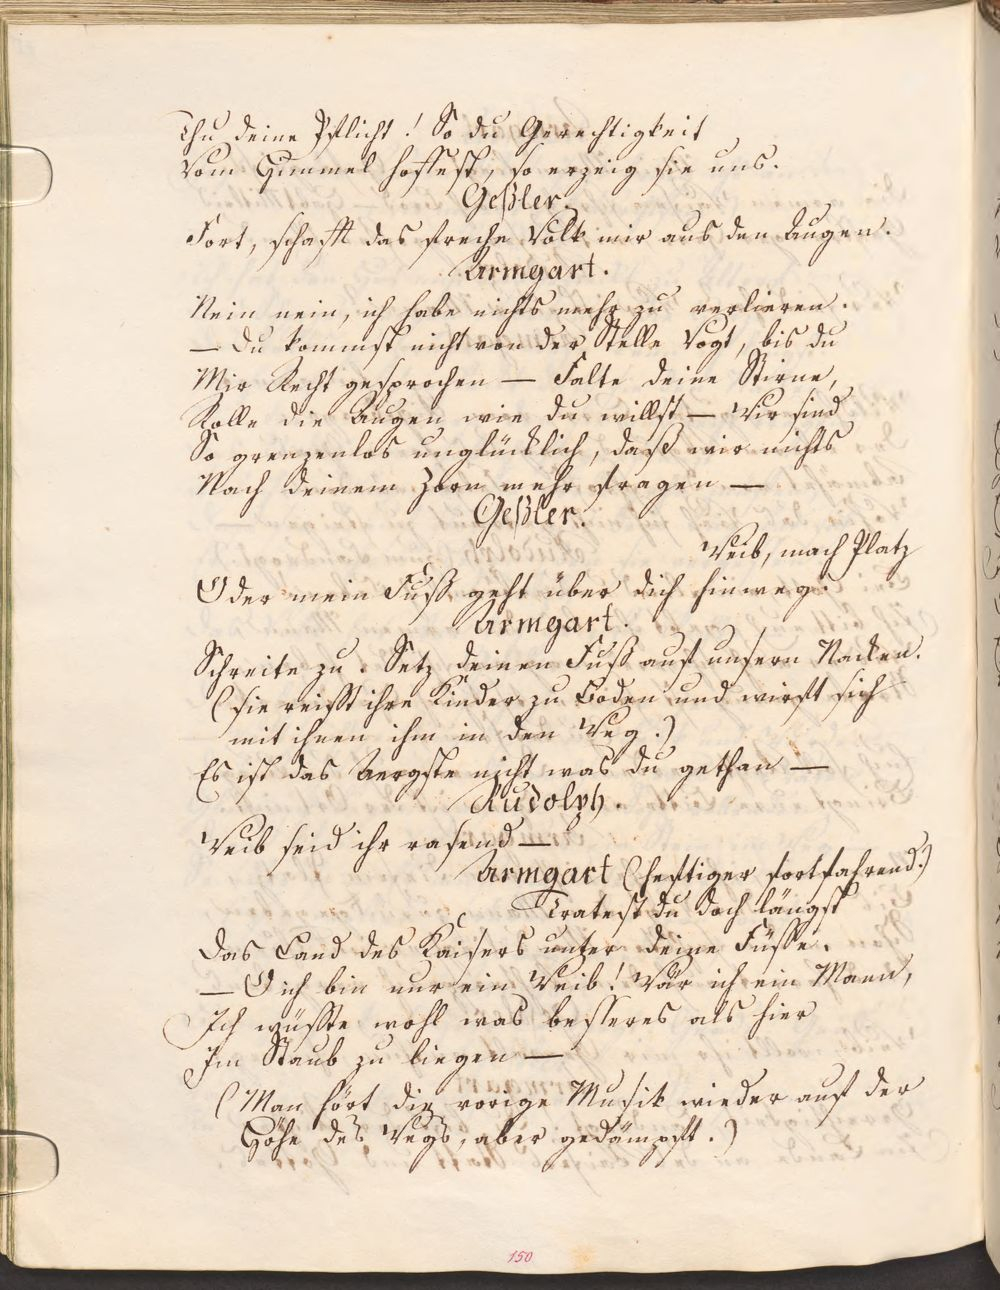 Thu deine Pflicht! So du Gerechtigkeit
Vom Himmel hoffest, so erzeig sie uns.
Geßler.
Fort, schafft das freche Volk mir aus den Augen.
Armgart.
Nein nein, ich habe nichts mehr zu verlieren.
— Du kommst nicht von der Stelle Vogt, bis du
Mir Recht gesprochen — Falte deine Stirne,
Rolle die Augen wie du willst — Wir sind
So grenzenlos unglücklich, daß wir nichts
Nach deinem Zorn mehr fragen —
Geßler.
Weib, mach Platz
Oder mein Fuß geht über dich hinweg.
Armgart.
Schreite zu. Setz deinen Fuß auf unsern Nacken.
(sie reißt ihre Kinder zu Boden und wirft sich
mit ihnen ihm in den Weg.)
Es ist das Aergste nicht was du gethan —
Rudolph.
Weib seid ihr rasend —
Armgart (heftiger fortfahrend.)
Tratest du doch längst
Das Land des Kaisers unter deine Füsse.
— O ich bin nur ein Weib! Wär ich ein Mann,
Ich wüßte wohl was besseres als hier
Im Staub zu liegen —
(Man hört die vorige Musik wieder auf der
Höhe des Wegs, aber gedämpft.)
150